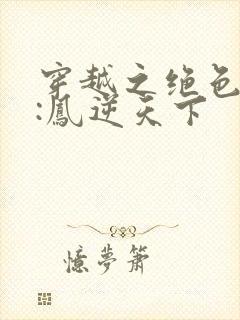 穿越之绝色
:鳳逆天下
憶夢簫